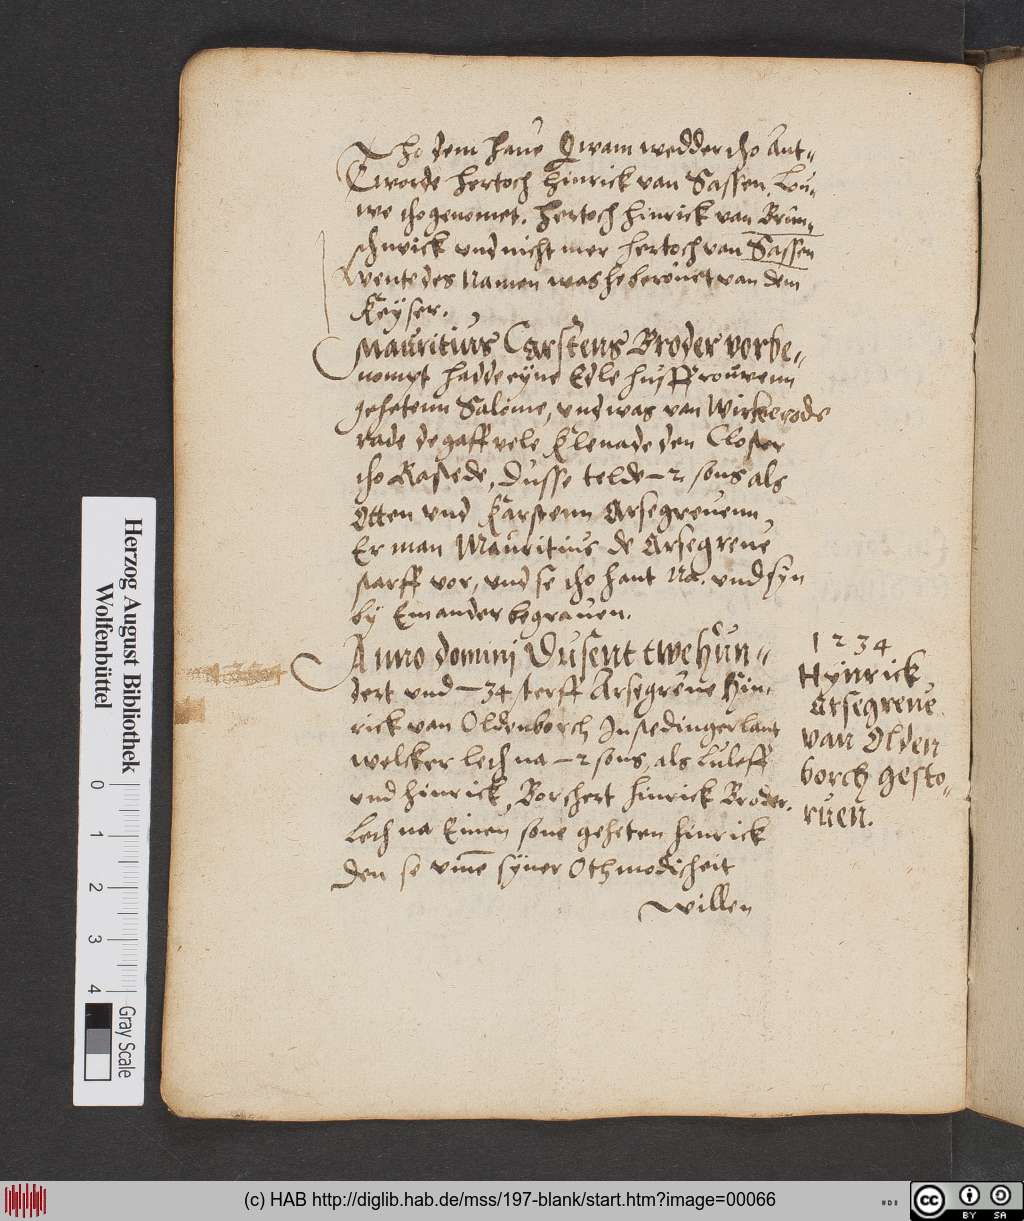 Tho dem have Qwam wedder tho Ant-
worde Hertoch Hinrick van Sassen, Lou-
we tho genomet. Hertoch Hinrick van Brun-
schwick und nicht mer Hertoch van Sassen
wente des Namen was he berovet van dem
Keÿser.
Mauritius Carstens Broder vorbe-
nompt hadde eÿne Edle huſffrouwenn
geheten Salome, und was van Wickerode
rade de gaff vele Klenade den Closter
tho Rastede, Dusse telde 2 sons als
Otten und Karstenn Arsegrevenn,
Er man Mauritius de Arsegreve
starff vor, und se tho hant Na. und syn
bÿ Einander begraven.
Anno domini Dusent twehun-
dert und 34 sterff Arsegreve Hin-
rick van Oldenborch In stedinger lant
welcker leth na 2 sons, als Luleff
und Hinrick, Borchert Hinrick Broder.
Leth na Einen sone geheten Hinrick
den se umme sÿner Othmodicheit
willen
1234
Hÿnrick
Arsegreve
van Olden
borch gesto-
rven.
Herzog August Bibliothek
Wolfenbüttel
0 1 2 3 4
Gray Scale
(c) HAB http://diglib.hab.de/mss/197-blank/start.htm?image=00066
cc BY SA